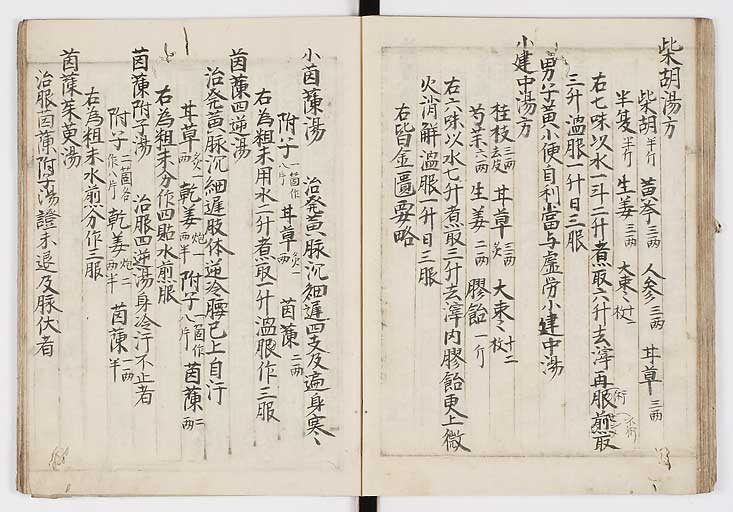 柴胡湯方
柴胡半斤 黄芩三両 人参三両 甘草三両
半夏半斤 生姜三両 大棗十二枚
右七味以水一斗二升煮取六升去滓再服煎取
三升温服一升日三服
男子黄小便自利当与虚労小建中湯
小建中湯方
桂枝三両去皮 甘草三両炙 大棗十二枚
芍薬六両 生姜二両 膠飴一斤
右六味以水七升煮取三升去滓内膠飴更上微
火消解温服一升日三服
右皆金匱要略
小茵蔯湯 治発黄脉沉細遅四支及遍身寒〻
附子一箇作八片 甘草炙一両 茵蔯二両
右為粗末用水二升煮取一升温服作三服
茵蔯四逆湯
治発黄脉沉細遅肢体逆冷腰已上自汗
甘草炙一両 乾姜炮一両半 附子一箇作八片 茵蔯二両
右為粗末分作四貼水煎服
茵蔯附子湯 治服四逆湯身冷汗不止者
附子二箇各作八片 乾姜炮二両半 茵蔯一両半
右為粗末水煎分作三服
茵蔯茱萸湯
治服茵蔯附子湯證未退及脉伏者